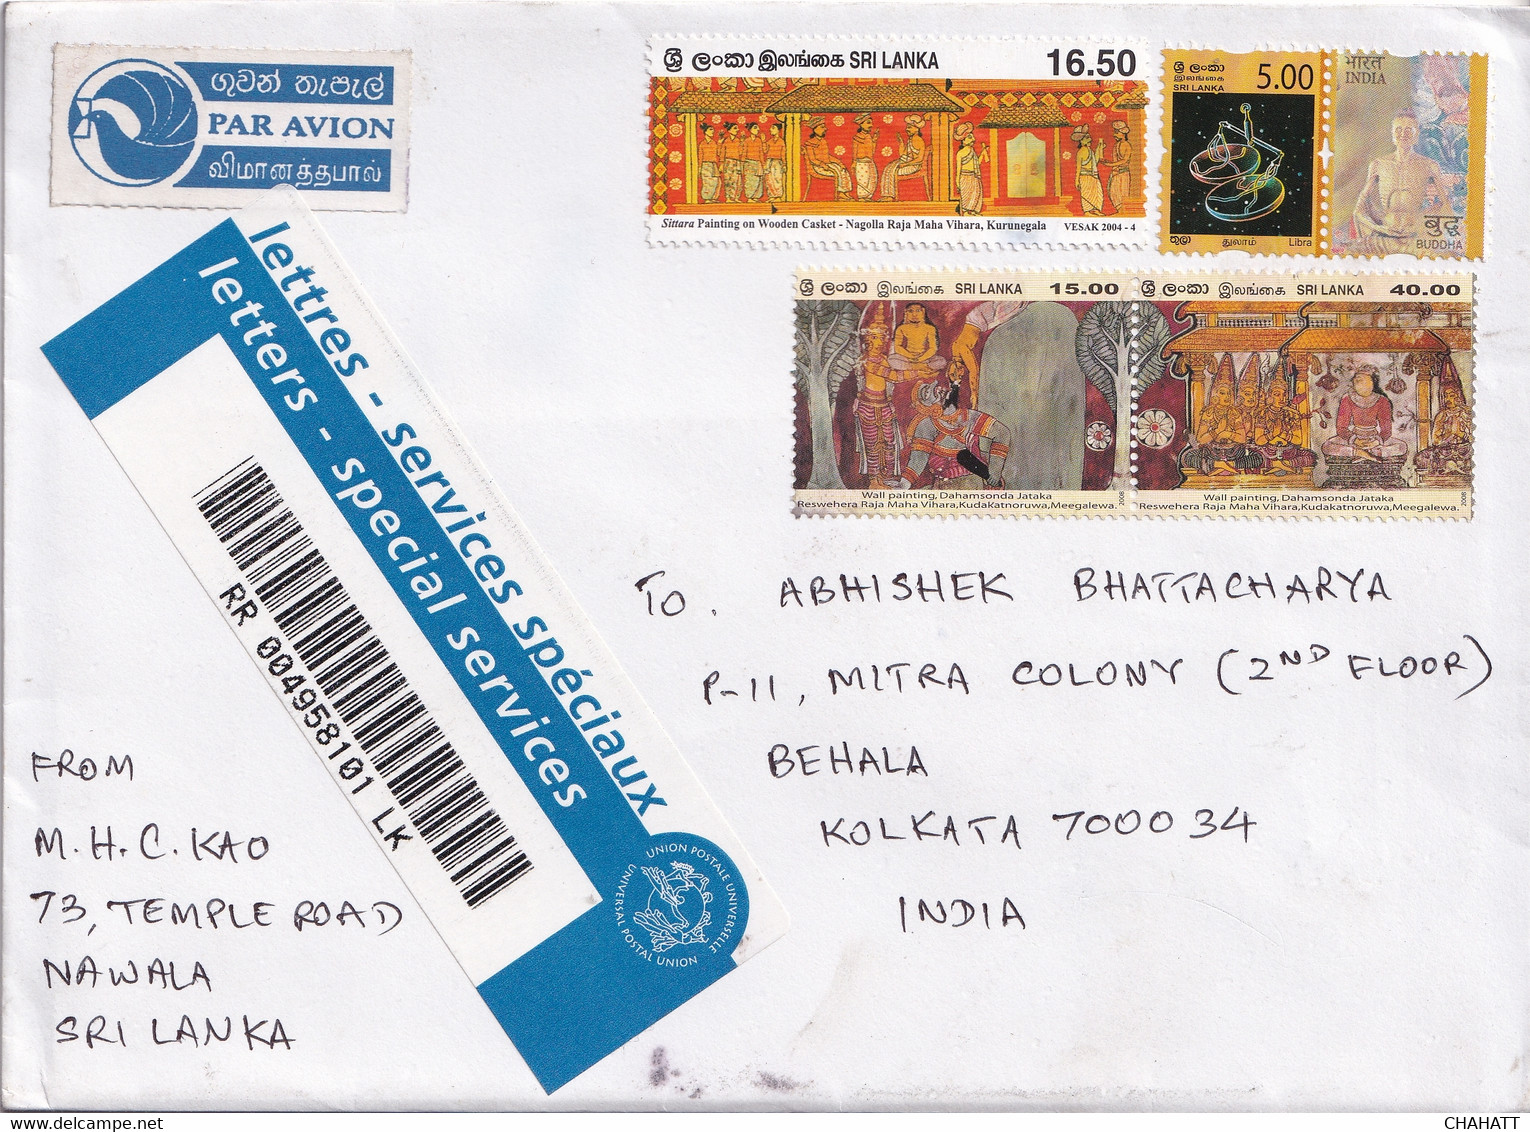 ගුවන් තැපැල්
PAR AVION
விமானத்தபால்
ශ්‍රී ලංකා இலங்கை SRI LANKA 16.50
Sittara Painting on Wooden Casket - Nagolla Raja Maha Vihara, Kurunegala VESAK 2004 - 4
ශ්‍රී ලංකා
இலங்கை
SRI LANKA
5.00
තුලා துலாம் Libra
भारत
INDIA
बुद्ध
BUDDHA
ශ්‍රී ලංකා இலங்கை SRI LANKA 15.00
Wall painting, Dahamsonda Jataka
Reswehera Raja Maha Vihara,Kudakatnoruwa,Meegalewa.
2008
ශ්‍රී ලංකා இலங்கை SRI LANKA 40.00
Wall painting, Dahamsonda Jataka
Reswehera Raja Maha Vihara,Kudakatnoruwa,Meegalewa.
2008
lettres - services spéciaux
letters - special services
RR 004958101 LK
UNION POSTALE UNIVERSELLE
UNIVERSAL POSTAL UNION
TO. ABHISHEK BHATTACHARYA
P-11, MITRA COLONY (2ND FLOOR)
BEHALA
KOLKATA 700034
INDIA
FROM
M.H.C.KAO
73, TEMPLE ROAD
NAWALA
SRI LANKA
CHAHATT
www.delcampe.net